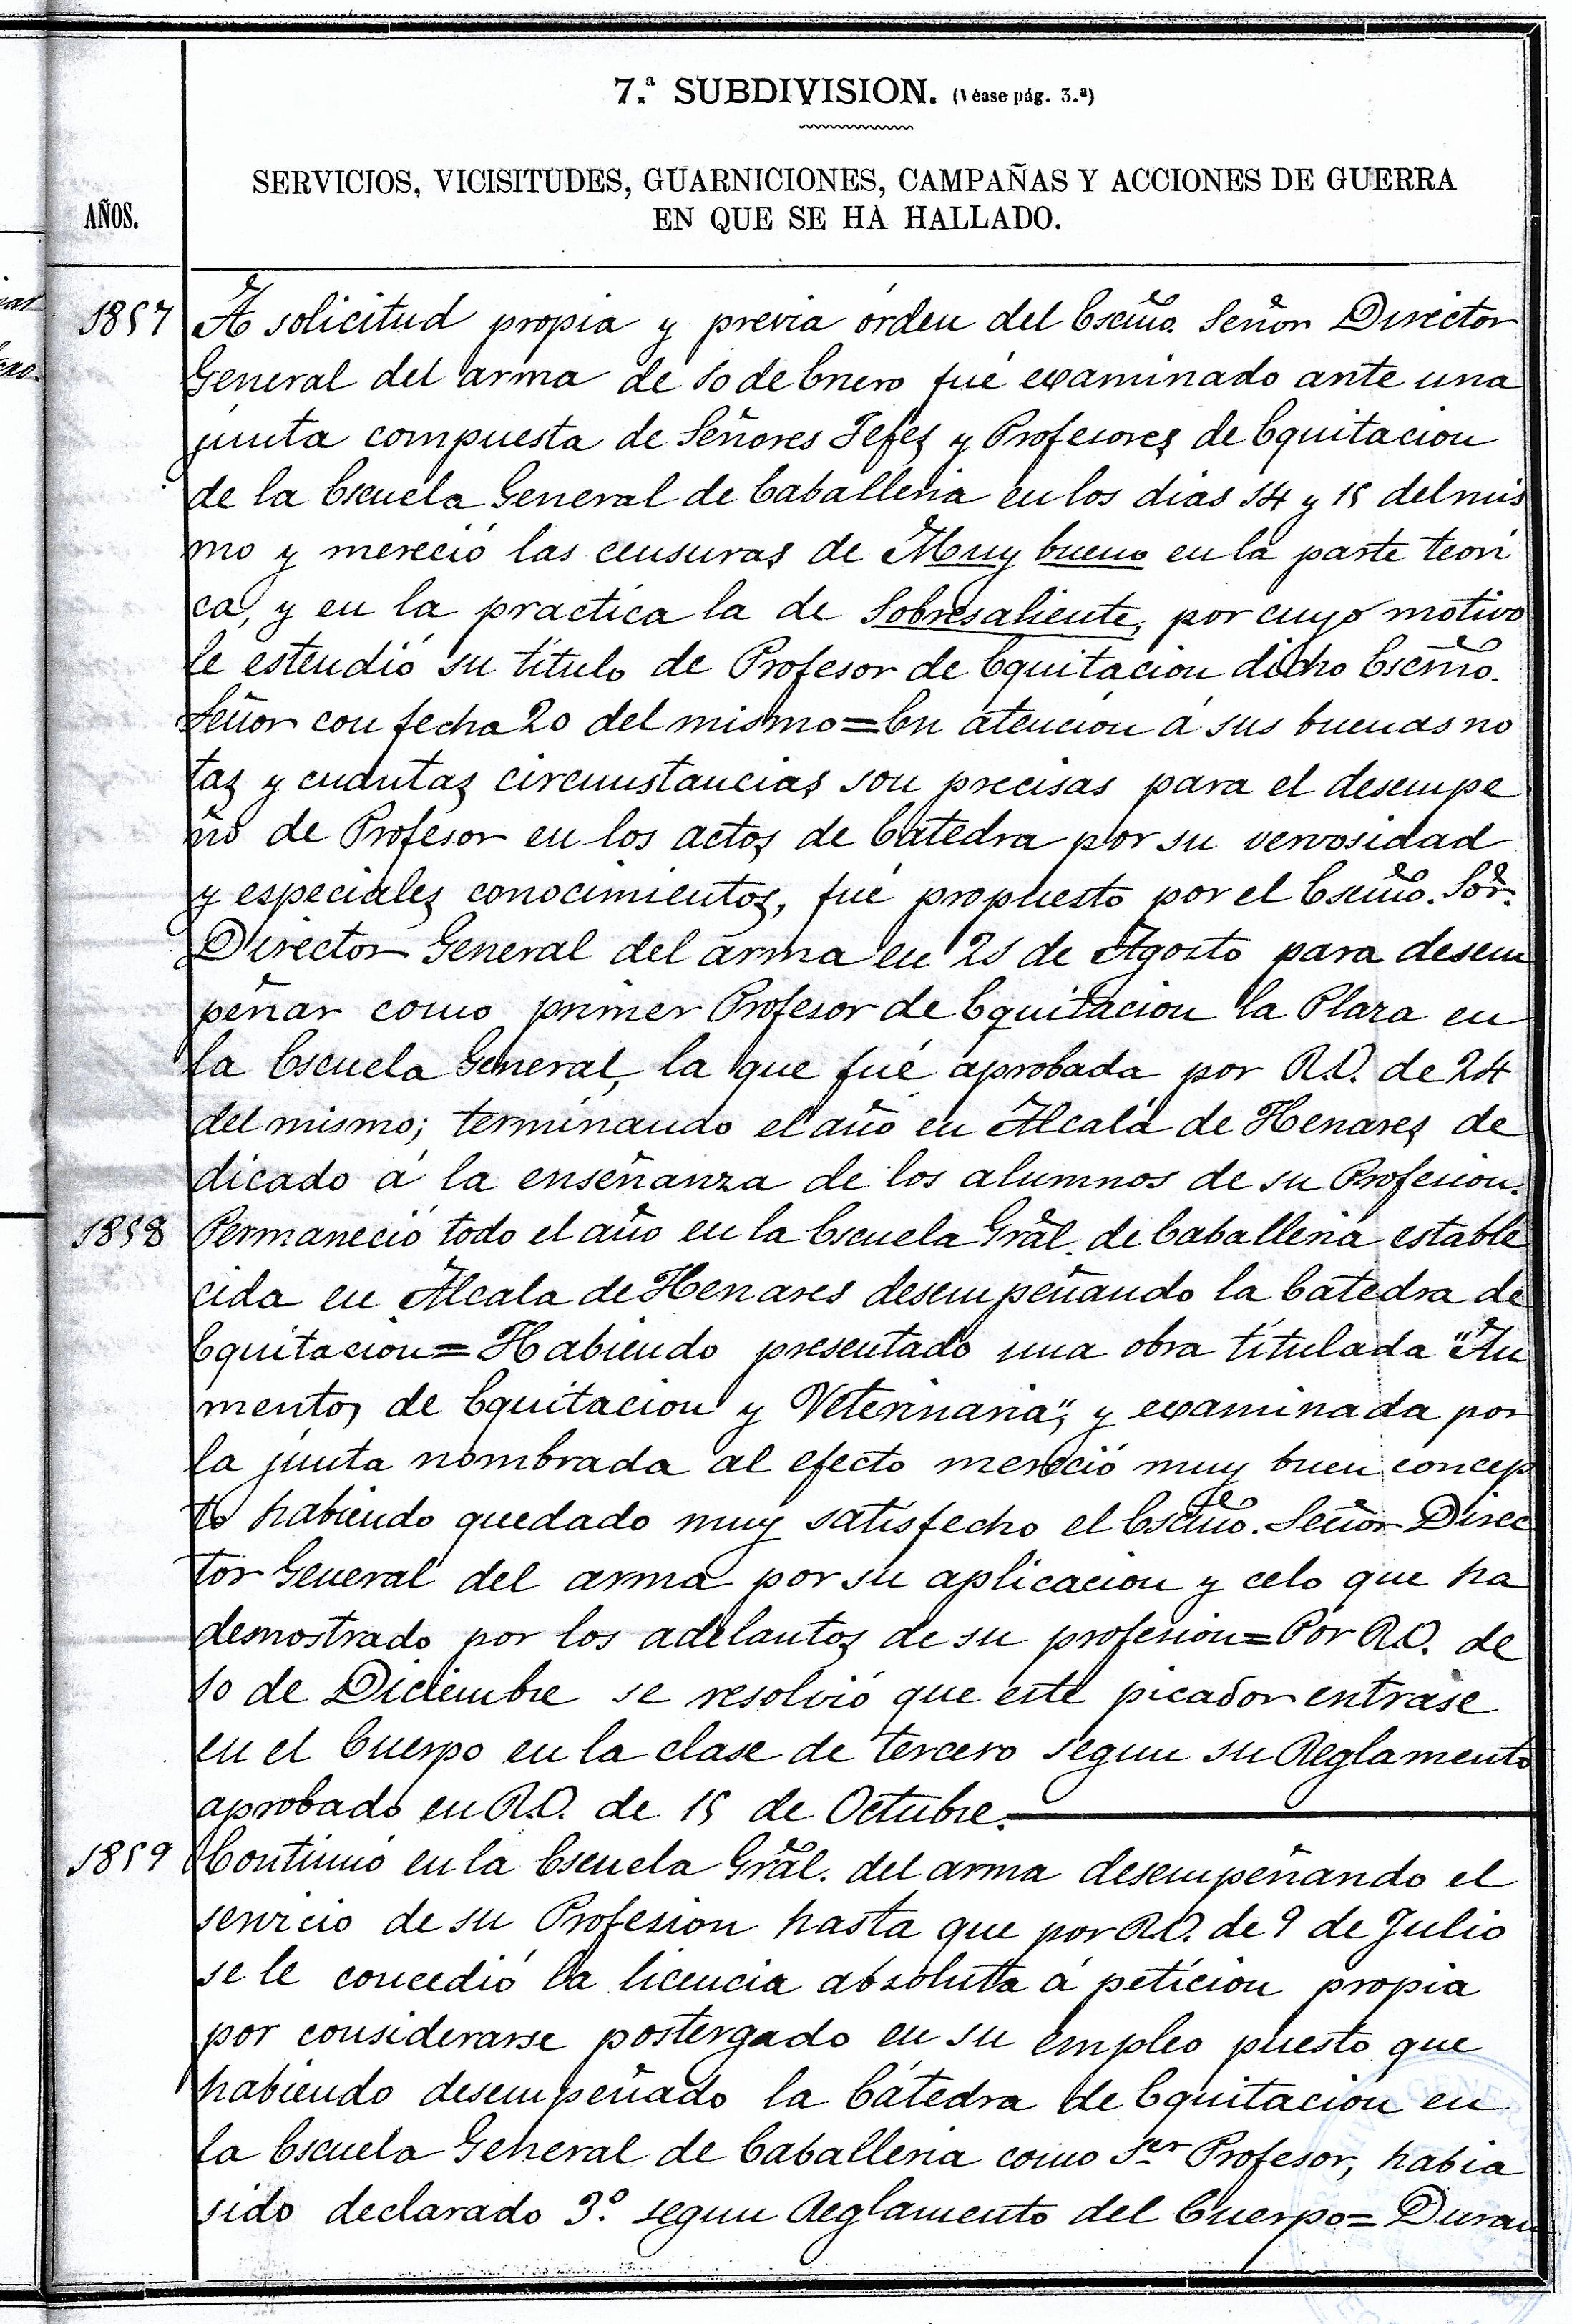 7.ª SUBDIVISION. (Véase pág. 3.ª)
SERVICIOS, VICISITUDES, GUARNICIONES, CAMPAÑAS Y ACCIONES DE GUERRA
EN QUE SE HA HALLADO.
AÑOS.
1857 A solicitud propia y previa órden del Escmo. Señor Director
General del arma de 10 de Enero fué examinado ante una
junta compuesta de Señores Jefes y Profesores de Equitacion
de la Escuela General de Caballeria en los dias 14 y 15 del mis
mo y mereció las censuras de Muy bueno en la parte teori
ca, y en la practica la de Sobresaliente, por cuyo motivo
le estendió su titulo de Profesor de Equitacion dicho Escmo.
Señor con fecha 20 del mismo=En atencion á sus buenas no
tas y cuantas circunstancias son precisas para el desempe
ño de Profesor en los actos de Catedra por su vervosidad
y especiales conocimientos, fué propuesto por el Escmo. Sor.
Director General del arma en 21 de Agosto para desem
peñar como primer Profesor de Equitacion la Plaza en
la Escuela General, la que fué aprobada por R.O. de 24
del mismo; terminando el año en Alcalá de Henares de
dicado á la enseñanza de los alumnos de su Profesion.
1858 Permaneció todo el año en la Escuela Gral. de Caballeria estable
cida en Alcala de Henares desempeñando la Catedra de
Equitacion=Habiendo presentado una obra titulada "Au
mentos de Equitacion y Veterinaria", y examinada por
la junta nombrada al efecto mereció muy buen concep
to habiendo quedado muy satisfecho el Escmo. Señor Direc
tor General del arma por su aplicacion y celo que ha
demostrado por los adelantos de su profesion=Por R.O. de
10 de Diciembre se resolvió que este picador entrase
en el Cuerpo en la clase de tercero segun su Reglamento
aprobado en R.O. de 15 de Octubre.
1859 Continuó en la Escuela Gral. del arma desempeñando el
servicio de su Profesion hasta que por R.O. de 9 de Julio
se le concedió la licencia absoluta á peticion propia
por considerarse postergado en su empleo puesto que
habiendo desempeñado la Cátedra de Equitacion en
la Escuela General de Caballeria como 1er Profesor, habia
sido declarado 3.º segun Reglamento del Cuerpo=Duran